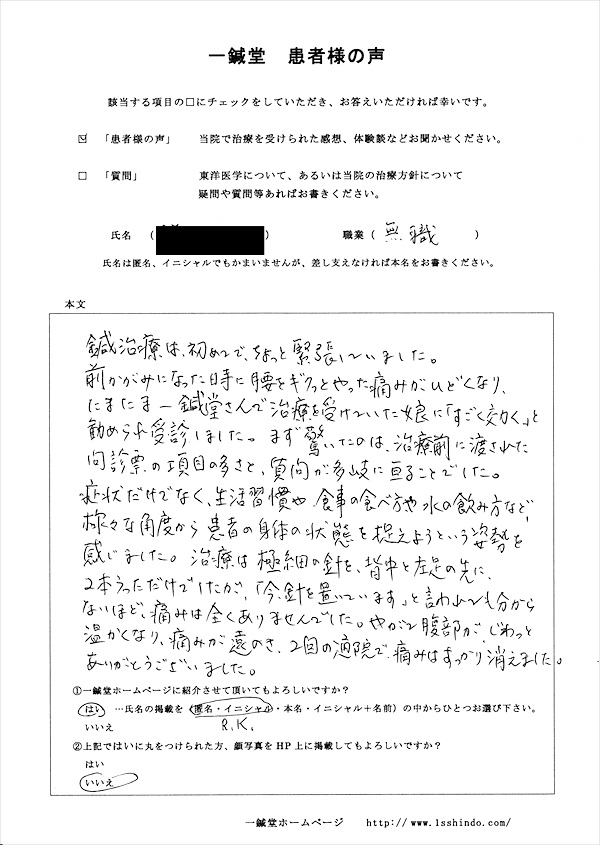 一鍼堂 患者様の声
該当する項目の□にチェックをしていただき、お答えいただければ幸いです。
☑ 「患者様の声」 当院で治療を受けられた感想、体験談などお聞かせください。
□ 「質問」 東洋医学について、あるいは当院の治療方針について
疑問や質問等あればお書きください。
氏名 ( ) 職業 ( 無職 )
氏名は匿名、イニシャルでもかまいませんが、差し支えなければ本名をお書きください。
本文
鍼治療は、初めてで、ちょっと緊張していました。
前かがみになった時に腰をギクッとやった痛みがひどくなり、
たまたま一鍼堂さんで治療を受けていた娘に「すごく効く」と
勧められ受診しました。まず驚いたのは、治療前に渡された
問診票の項目の多さと、質問が多岐に亘ることでした。
症状だけでなく、生活習慣や食事の食べ方や水の飲み方など
様々な角度から患者の身体の状態を捉えようという姿勢を
感じました。治療は極細の針を、背中と左足の先に、
2本うっただけでしたが、「今、針を置いています」と言われても分から
ないほど、痛みは全くありませんでした。やがて腹部が、じわっと
温かくなり、痛みが遠のき、2回の通院で、痛みはすっかり消えました。
ありがとうございました。
①一鍼堂ホームページに紹介させて頂いてもよろしいですか？
はい …氏名の掲載を（匿名・イニシャル・本名・イニシャル＋名前）の中からひとつお選び下さい。
いいえ R.K.
②上記ではいに丸をつけられた方、顔写真を HP 上に掲載してもよろしいですか？
はい
いいえ
一鍼堂ホームページ http://www.1sshindo.com/